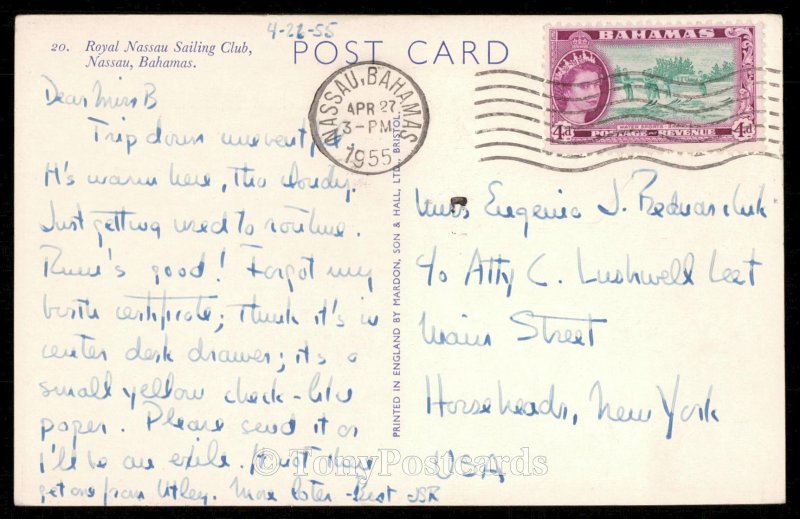 4-22-55
20. Royal Nassau Sailing Club,
Nassau, Bahamas.
POST CARD
NASSAU, BAHAMAS
APR 27
3-PM
1955
BAHAMAS
4d POSTAGE & REVENUE 4d
Dear Miss B
Trip down uneventful
It's warm here, tho cloudy.
Just getting used to routine.
Rum's good! Forgot my
birth certificate; think it's in
center desk drawer; its a
small yellow check-like
paper. Please send it or
I'll be an exile. If not there
get one from Utley. More later - Best - JSR
PRINTED IN ENGLAND BY MARDON, SON & HALL, LTD., BRISTOL.
Miss Eugenia J.
c/o Atty C. Lushwell
Main Street
Horseheads, New York
USA
© TonyPostcards